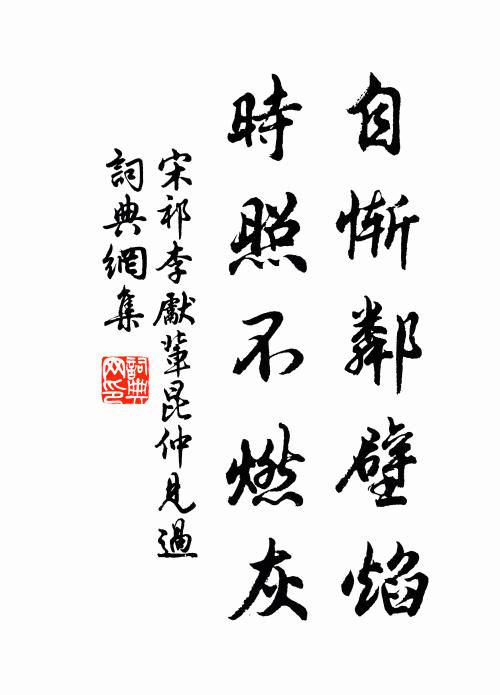 自慚鄰壁焰
時照不燃灰
宋祁李獻葦昆仲見過
詞典網集
詞典網印